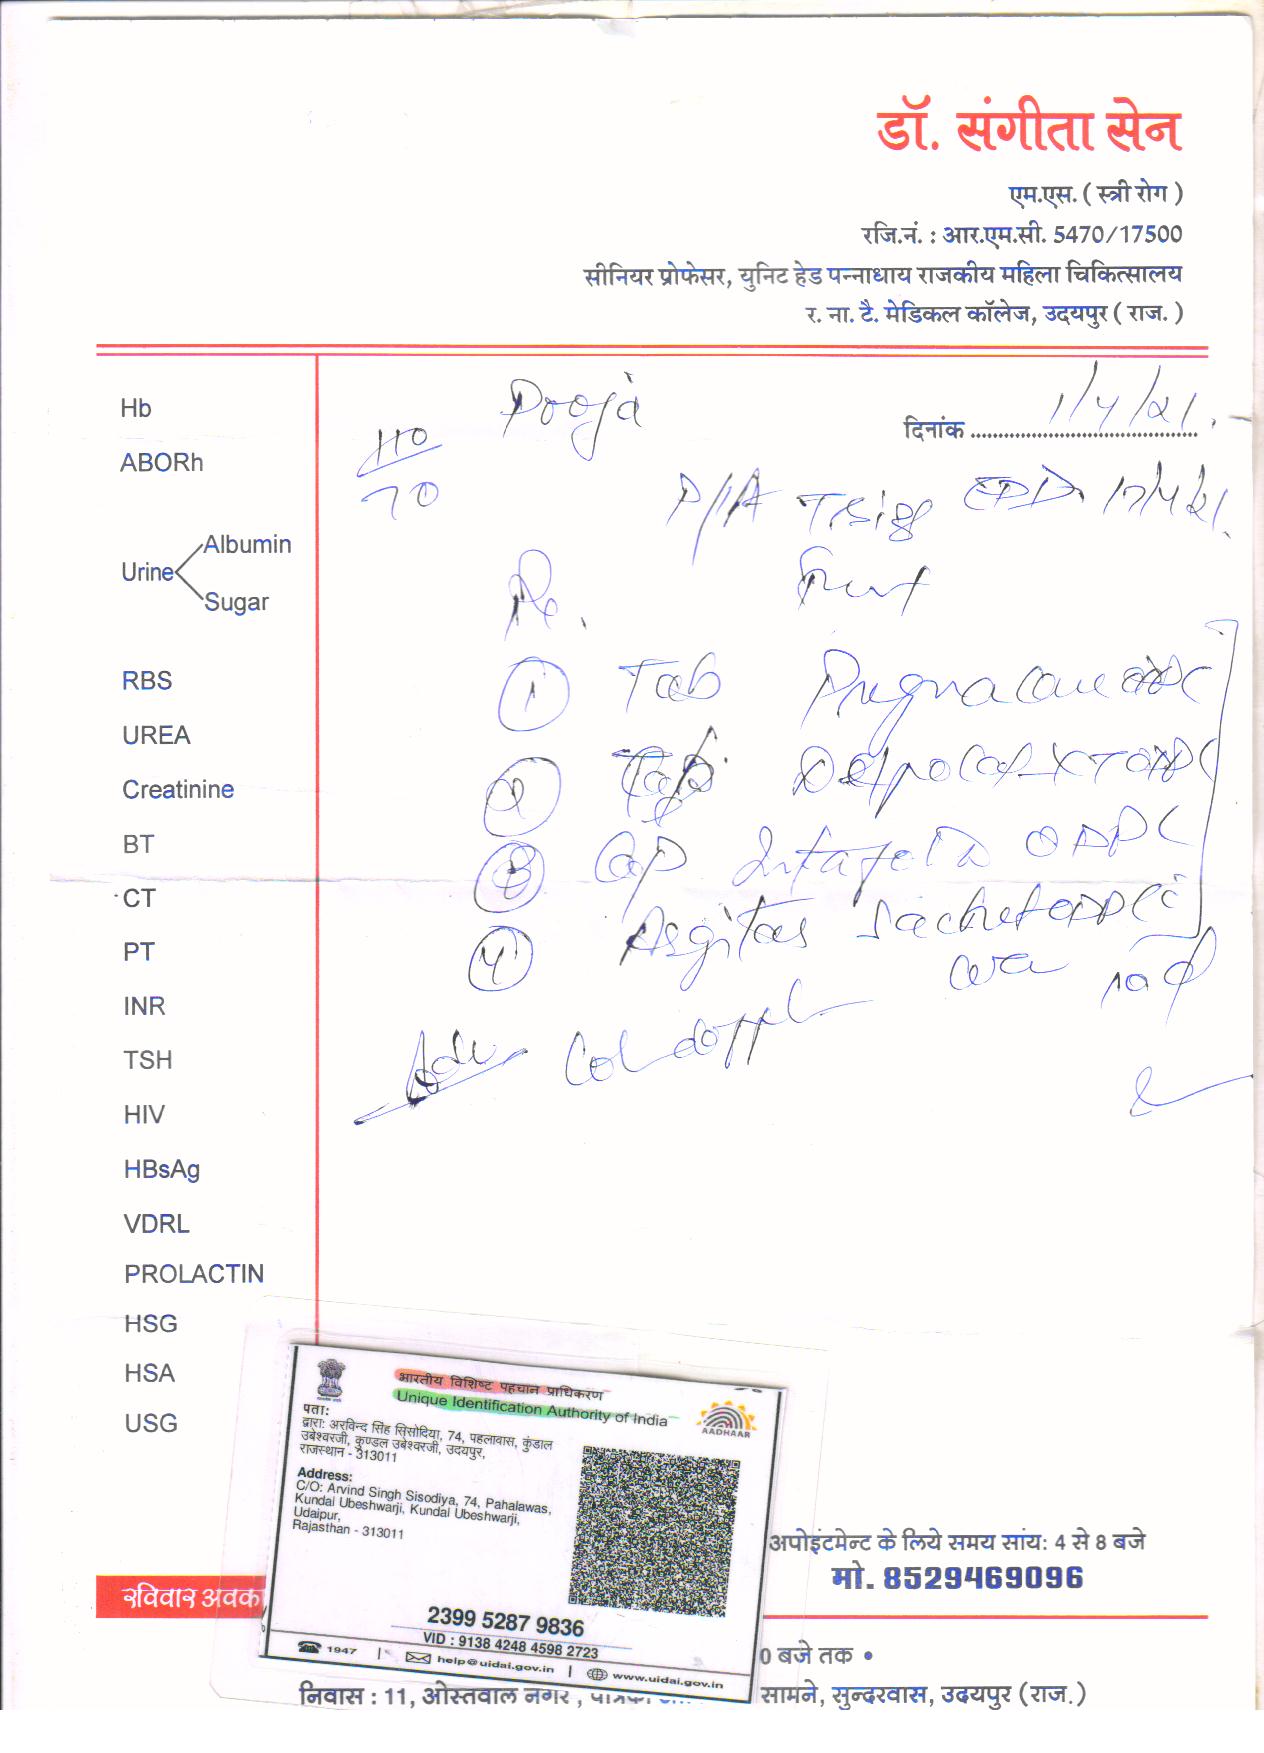 डॉ. संगीता सेन
एम.एस. ( स्त्री रोग )
रजि.नं. : आर.एम.सी. 5470/17500
सीनियर प्रोफेसर, युनिट हेड पन्नाधाय राजकीय महिला चिकित्सालय
र. ना. टै. मेडिकल कॉलेज, उदयपुर ( राज. )
Pooja
दिनांक 1/4/21.
110/70
P/A EDD 17/4/21.
Rx.
① Tab Pregnacare ODPC
② Tab ODPC
③ Cap ODPC
④ Asgitas Sachet ODPC
Adv Col doppl
Hb
ABORh
Urine Albumin
Sugar
RBS
UREA
Creatinine
BT
CT
PT
INR
TSH
HIV
HBsAg
VDRL
PROLACTIN
HSG
HSA
USG
भारतीय विशिष्ट पहचान प्राधिकरण
Unique Identification Authority of India
AADHAAR
पता:
द्वारा: अरविन्द सिंह सिसोदिया, 74, पहलावास, कुंडाल
उबेश्वरजी, कुण्डल उबेश्वरजी, उदयपुर,
राजस्थान - 313011
Address:
C/O: Arvind Singh Sisodiya, 74, Pahalawas,
Kundal Ubeshwarji, Kundal Ubeshwarji,
Udaipur,
Rajasthan - 313011
2399 5287 9836
VID : 9138 4248 4598 2723
1947 | help@uidai.gov.in | www.uidai.gov.in
अपोइंटमेन्ट के लिये समय सांय: 4 से 8 बजे
मो. 8529469096
रविवार अवका
0 बजे तक •
निवास : 11, ओस्तवाल नगर , सामने, सुन्दरवास, उदयपुर (राज.)